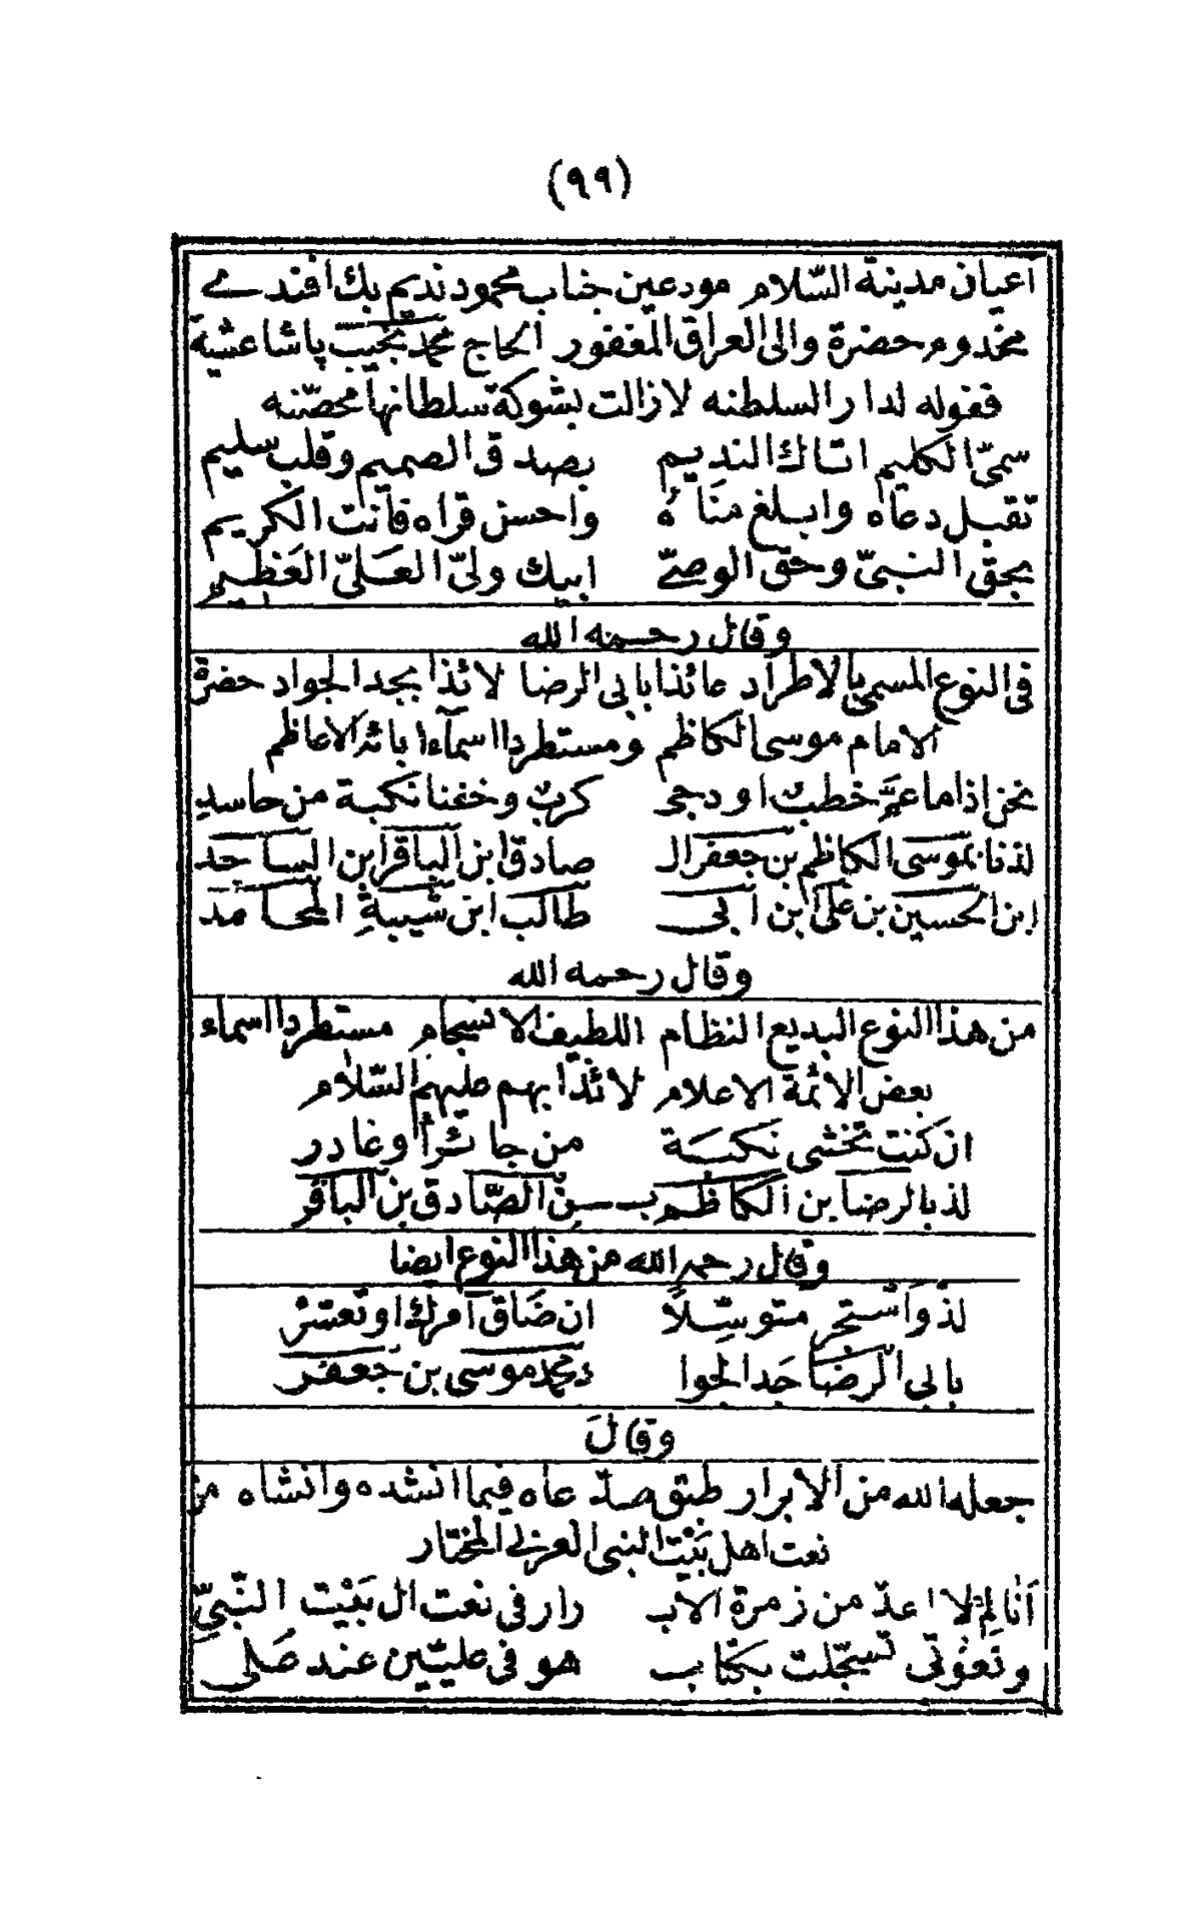 (٩٩)
اعيان مدينة السّلام مودعين جناب محمود نديم بك افندے
مخدوم حضرة والى العراق المغفور الحاج محمد نجيب پاشا عشية
قفوله لدار السلطنه لازالت بشوكة سلطانها محصّنه
سمىّ الكليم اتاك النديم بصدق الصميم وقلب سليم
تقبل دعاه وابلغ مناه واحسن قراه فانت الكريم
بحق النبىّ وحق الوصےّ ابيك ولىّ العلىّ العظيم
وقال رحمه الله
فى النوع المسمى بالاطراد عائذا بابى الرضا لائذا بجد الجواد حضرة
الامام موسى الكاظم ومستطردا اسمآء ابائه الاعاظم
نحن اذا ما عمَّ خطب او دجى كربٌ وخفنا نكبة من حاسد
لذنا بموسى الكاظم بن جعفر ال صادق ابن الباقر ابن الساجد
ابن الحسين بن على ابن ابى طالب ابن شيبةِ المحامد
وقال رحمه الله
من هذا النوع البديع النظام اللطيف الانسجام مستطردا اسماء
بعض الائمة الاعلام لائذا بهم عليهم السّلام
ان كنت تخشى نكبَة من جائرٍ أو غادر
لذ بالرضا بن الكاظم بــن الصّادق بن الباقر
وقال رحمه الله من هذا النوع ايضا
لذ واستجر متوسّلاً ان ضَاق امرك او تعسّر
بابى الرضا جَد الجوا د محمد موسى بن جعفر
وقالَ
جعله الله من الابرار طبق صدّ عاه فيما انشده وانشاه من
نعت اهل بَيْت النبى العربي المختار
اَنا لِمْ لا اعدّ من زمرة الاب رار فى نعت ال بَيْت النّبىّ
ونعوتى تسجّلت بكتاب هو فى عليّين عند عَلى